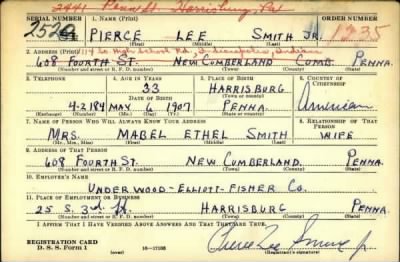 2441 Penn St. Harrisburg, Pa
SERIAL NUMBER 1. NAME (Print) ORDER NUMBER
252 PIERCE LEE SMITH JR. 1235
2. ADDRESS (Print) 114 So High School Rd., Indianapolis, Indiana
608 FOURTH ST. NEW CUMBERLAND CUMB. PENNA.
(Number and street or R. F. D. number) (Town) (County) (State)
3. TELEPHONE 4. AGE IN YEARS 5. PLACE OF BIRTH 6. COUNTRY OF CITIZENSHIP
33 HARRISBURG
DATE OF BIRTH (Town or county) American
4-2184 MAY 6 1907 PENNA.
(Exchange) (Number) (Mo.) (Day) (Yr.) (State or country)
7. NAME OF PERSON WHO WILL ALWAYS KNOW YOUR ADDRESS 8. RELATIONSHIP OF THAT PERSON
MRS. MABEL ETHEL SMITH WIFE
(Mr., Mrs., Miss) (First) (Middle) (Last)
9. ADDRESS OF THAT PERSON
608 FOURTH ST. NEW CUMBERLAND. PENNA.
(Number and street or R. F. D. number) (Town) (County) (State)
10. EMPLOYER'S NAME
UNDERWOOD-ELLIOTT-FISHER CO.
11. PLACE OF EMPLOYMENT OR BUSINESS
25 S. 3rd St. HARRISBURG PENNA.
(Number and street or R. F. D. number) (Town) (County) (State)
I AFFIRM THAT I HAVE VERIFIED ABOVE ANSWERS AND THAT THEY ARE TRUE.
REGISTRATION CARD
D. S. S. Form 1 (over) 16-17105 Pierce Lee Smith Jr
(Registrant's signature)